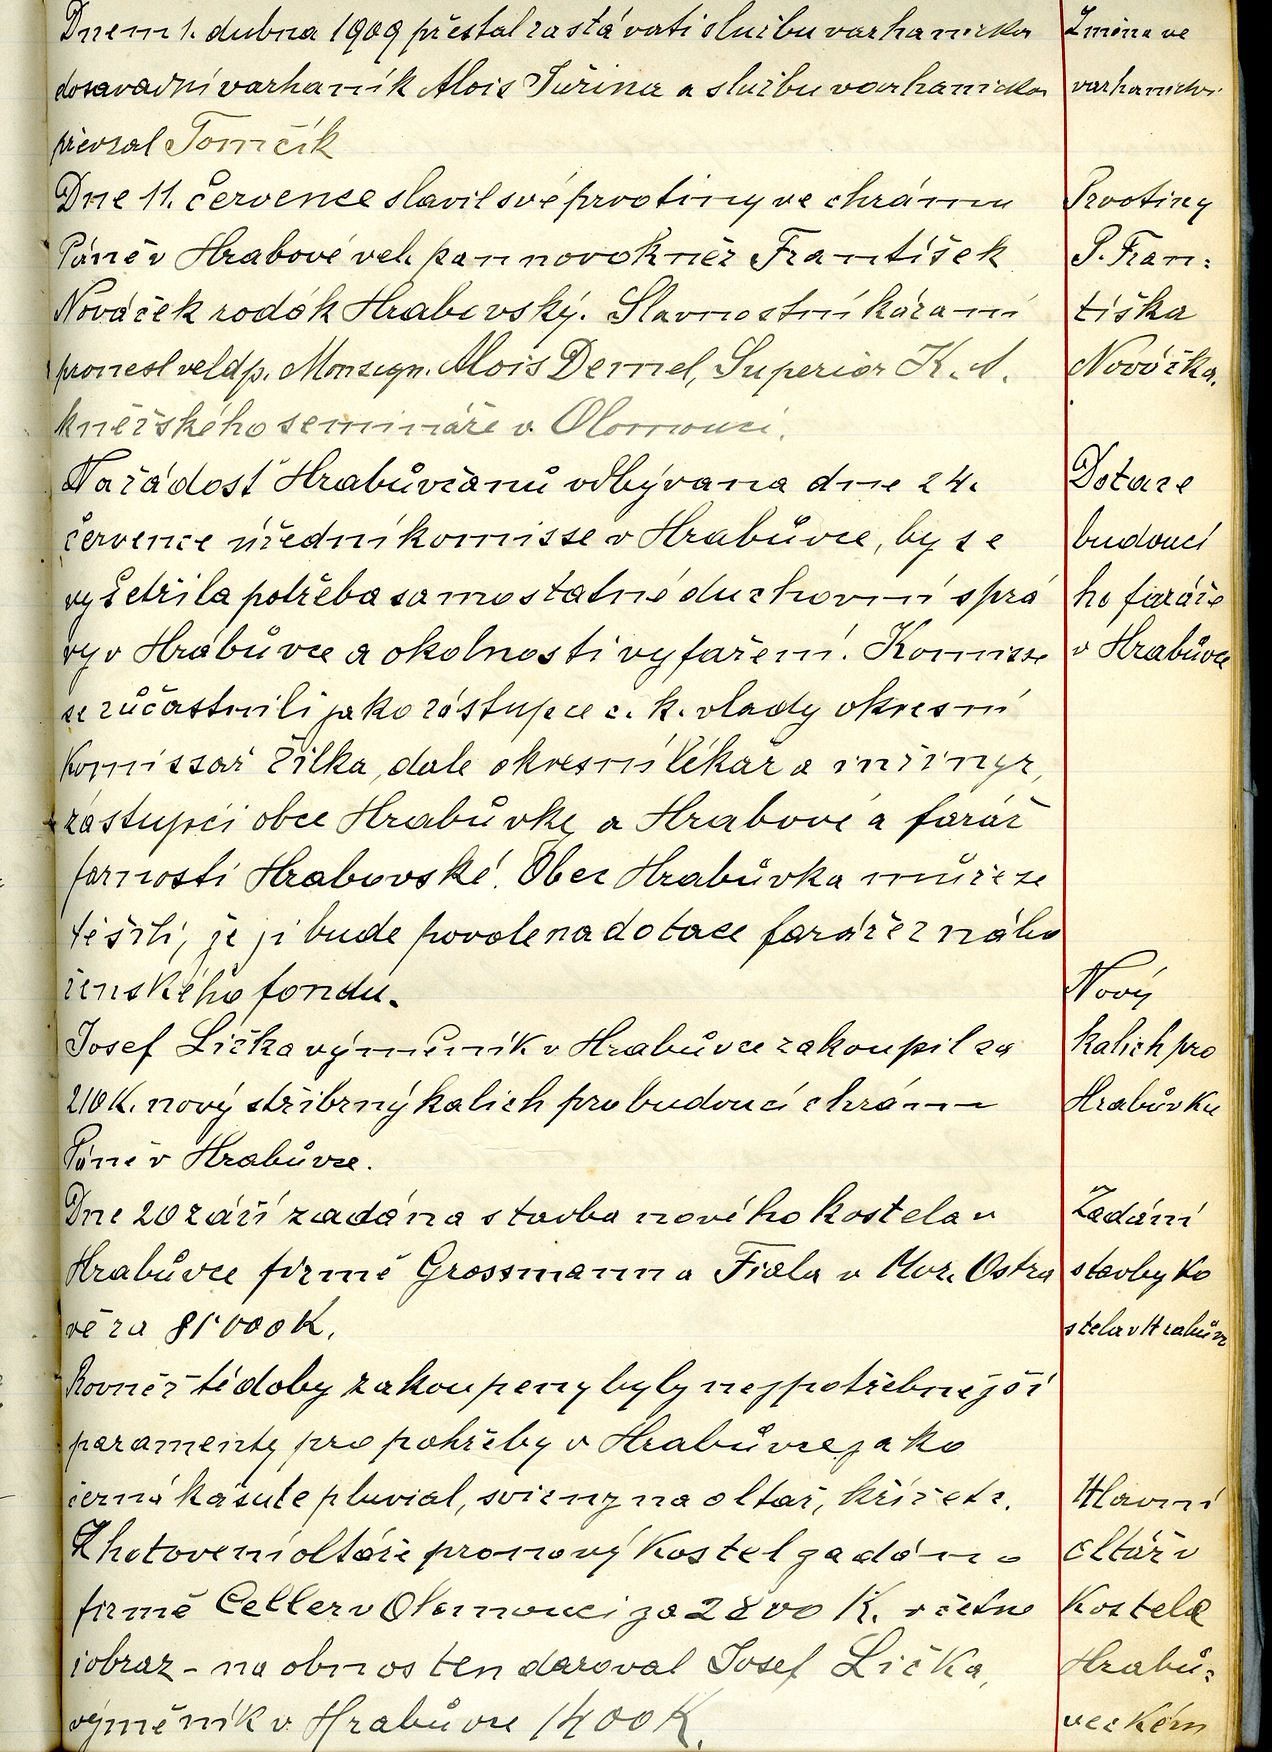 Dnem 1. dubna 1909 přestal zastávati službu varhanicko
dosavadní varhaník Alois Tuřina a službu varhanickou
převzal Tomčík
Dne 11. července slavil své prvotiny ve chrámu
Páně v Hrabové veleb. pan novokněz František
Nováček rodák Hrabovský. Slavnostní kázaní
pronesl veldp. Monsign. Alois Demel, Superior K. A.
kněžského semináře v Olomouci.
Na žádost Hrabůvčanů odbývana dne 24.
července úřední komisse v Hrabůvce, by se
vyšetřila potřeba samostatné duchovní sprá
vy v Hrabůvce a okolnosti vyfaření. Komisse
se zůčastnili jako zástupce c. k. vlady okresní
komissař Žilka, dale okresní lékař a inžinyr,
zástupci obce Hrabůvky a Hrabové a farář
farnosti Hrabovské. Obec Hrabůvka může se
těšiti, že ji bude povolena dotace faráře z nábo
ženského fondu.
Josef Lička výměník v Hrabůvce zakoupil za
210 K. nový střibrný kalich pro budoucí chrám
Páně v Hrabůvce.
Dne 20 záři zadána stavba nového kostela v
Hrabůvce firmě Grossmann a Fiala v Mor. Ostra
vě za 81000 K.
Rovněž té doby zakoupeny byly nejpotřebnější
paramenty pro pohřeby v Hrabůvce jako
černá kasule pluvial, svicny na oltař, kříž etc.
Zhotovení oltáře pro nový kostel zadáno
firmě Celler v Olomouci za 2800 K. včetně
i obraz - na obnos ten daroval Josef Lička,
výměník v Hrabůvce 1400 K.
Změna ve
varhanictví
Prvotiny
P. Fran:
tiška
Nováčka.
Dotace
budoucí
ho faráře
v Hrabůvce
Nový
kalich pro
Hrabůvku
Zadání
stavby ko
stela v Hrabůvce
Hlavní
oltář v
kostele
Hrabů:
veckém